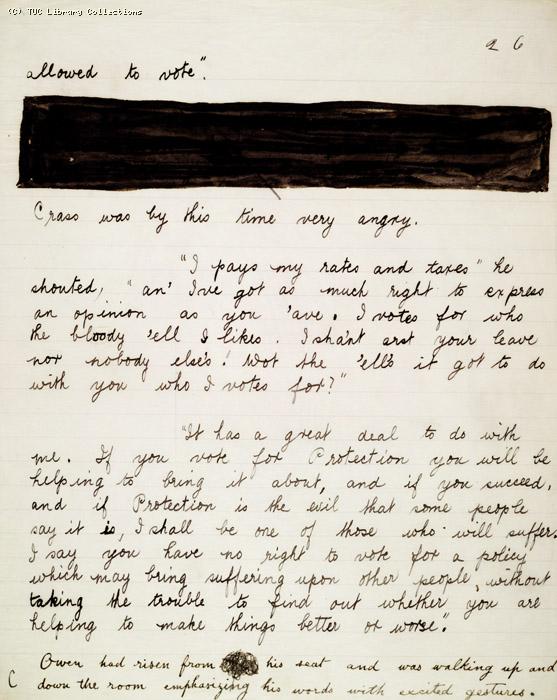 (C) TUC Library Collections
26
allowed to vote".
Crass was by this time very angry.
"I pays my rates and taxes" he
shouted, "an' I've got as much right to express
an opinion as you 'ave. I votes for who
the bloody 'ell I likes. I sha'nt arst your leave
nor nobody else's! Wot the 'ell's it got to do
with you who I votes for?"
"It has a great deal to do with
me. If you vote for Protection you will be
helping to bring it about, and if you succeed,
and if Protection is the evil that some people
say it is, I shall be one of those who will suffer.
I say you have no right to vote for a policy
which may bring suffering upon other people, without
taking the trouble to find out whether you are
helping to make things better or worse".
Owen had risen from his seat and was walking up and
C down the room emphasizing his words with excited gestures.